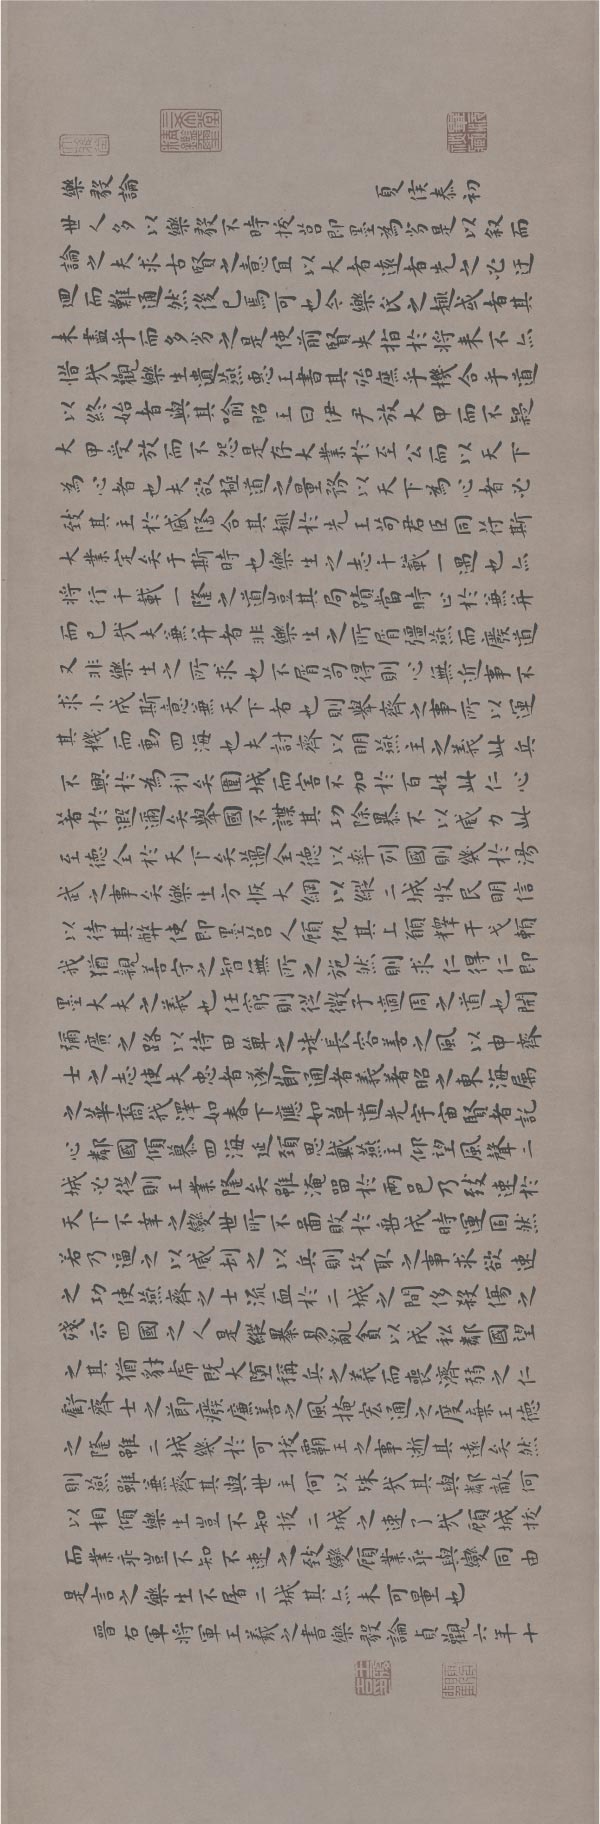 樂毅論　夏侯泰初
世人多以樂毅不時拔莒即墨為劣是以叙而
論之夫求古賢之意宜以大者遠者先之必迂
迴而難通然後已焉可也今樂氏之趣或者其
未盡乎而多劣之是使前賢失指於將來不亦
惜哉觀樂生遺燕惠王書其殆庶乎機合乎道
以終始者與其喻昭王曰伊尹放大甲而不疑
大甲受放而不怨是存大業於至公而以天下
為心者也夫欲極道之量務以天下為心者必
致其主於盛隆合其趣於先王苟君臣同符斯
大業定矣于斯時也樂生之志千載一遇也亦
將行千載一隆之道豈其局蹟當時止於兼并
而已哉夫兼并者非樂生之所屑彊燕而廢道
又非樂生之所求也不屑苟得則心無近事不
求小成斯意兼天下者也則舉齊之事所以運
其機而動四海也夫討齊以明燕主之義此兵
不興於為利矣圍城而害不加於百姓此仁心
著於遐邇矣舉國不謀其功除暴不以威力此
至德全於天下矣邁全德以率列國則幾於湯
武之事矣樂生方恢大綱以縱二城收民明信
以待其弊使即墨莒人顧仇其上願釋干戈賴
我猶親善守之智無所之施然則求仁得仁即
墨大夫之義也任窮則從微子適周之道也開
彌廣之路以待田單之徒長容善之風以申齊
士之志使夫忠者遂節通者義著昭之東海屬
之華裔我澤如春下應如草道光宇宙賢者託
心鄰國傾慕四海延頸思戴燕主仰望風聲二
城必從則王業隆矣雖淹留於兩邑乃致速於
天下不幸之變世所不啚敗於垂成時運固然
若乃逼之以威劫之以兵則攻取之事求欲速
之功使燕齊之士流血於二城之間侈殺傷之
殘示四國之人是縱暴易亂貪以成私鄰國望
之其猶豺虎既大墮稱兵之義而喪濟弱之仁
虧齊士之節癈廉善之風掩宏通之度棄王德
之隆雖二城幾於可拔霸王之事逝其遠矣然
則燕雖兼齊其與世主何以殊哉其與鄰敵何
以相傾樂生豈不知拔二城之速了哉顧城拔
而業乖豈不知不速之致變顧業乖與變同由
是言之樂生不屠二城其亦未可量也
晉右軍將軍王羲之書樂毅論貞觀六年十